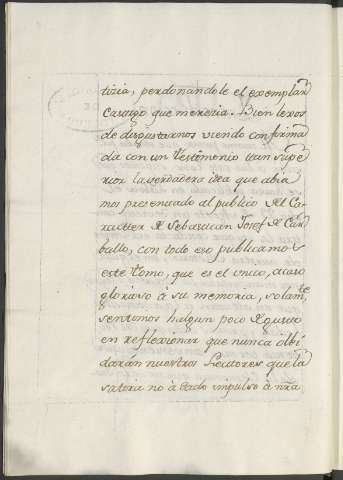 tizia, perdonandole el exemplar
Castigo que merezia. Bien lexos
de disgustarnos viendo confirma
da con un testimonio tan supe
rior la verdadera idea que abia
mos presentado al publico del Ca
racter de Sebastian Josef de Car
ballo, con todo eso publicamos
este tomo, que es el unico, acaso
glorioso à su memoria, solamte
sentimos halgun poco de gusto
en reflexionar que nunca olbi
darán nuestros Lectores que la
satira no à dado impulso à nrã